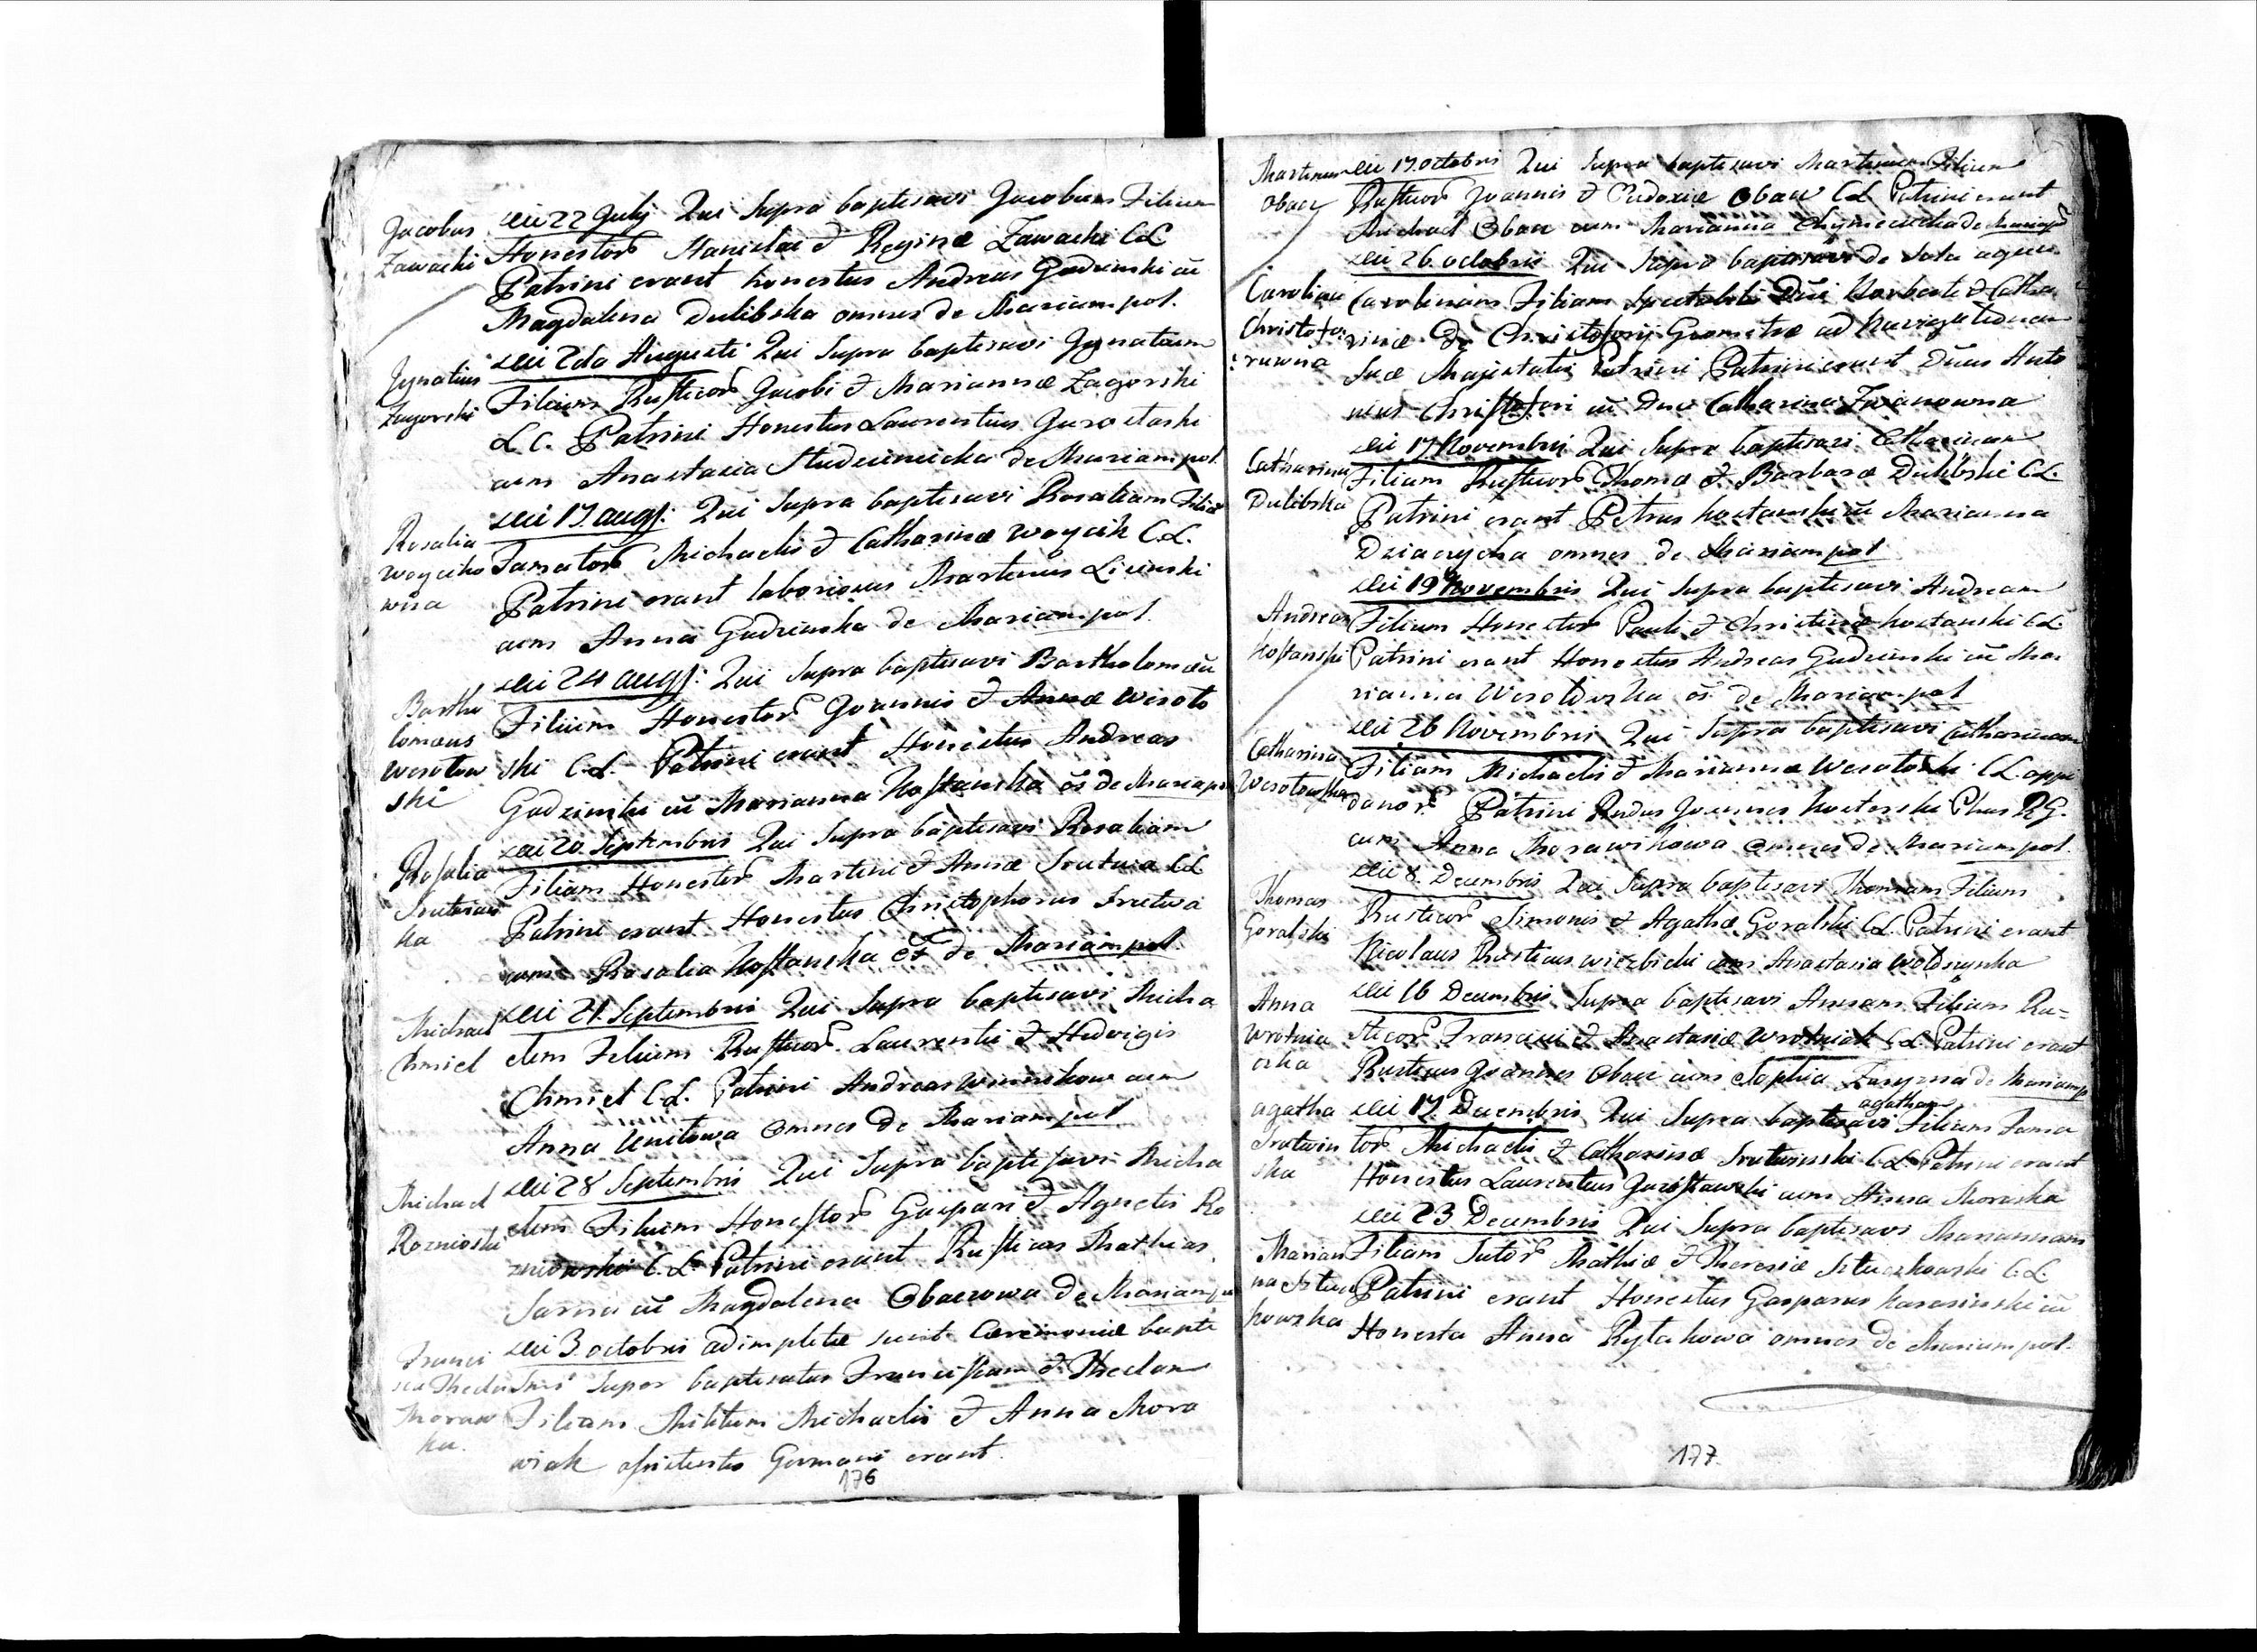 Jacobus
Zawacki
die 22 July Qui supra baptisavi Jacobum Filium
Honestor Stanislai & Reginæ Zawacki CL
Patrini erant honestus Andreas Gudzinski cū
Magdalena Dulibska omnes de Mariampol.
Ignatius
Zagorski
die 2do Augusti Qui supra baptisavi Ignatium
Filium Rusticor Jacobi & Mariannæ Zagorski
L C. Patrini Honestus Laurentius
cum Anastasia de Mariampol
Rosalia
Woyciko
wna
die 17 augg: Qui supra baptisavi Rosaliam Filiā
Famator Michaelis & Catharinæ Woycik C.L.
Patrini erant laboriosus Martinus Licinski
cum Anna Gudzinska de Mariampol
Bartho
lomæus
Wesołow
ski
die 24 augg: Qui supra baptisavi Bartholomæū
Filium Honestor Joannis & Annæ Wesoło
ski C.L. Patrini erant Honestus Andreas
Gudzinski cū Marianna Kostanska oēs de Mariapol
Rosalia
ka
die 20. Septembris Qui supra baptisavi Rosaliam
Filiam Honestor Martini & Annæ Srutwa CL
Patrini erant Honestus Christophorus Srutwa
cum Rosalia Kostanska de Mariampol.
Michael
Chmiel
die 21. Septembris Qui supra baptisavi Micha
elem Filium Rusticor. Laurentii & Hedvigis
Chmiel C.L. Patrini Andreas cum
Anna omnes de Mariampol
Michael
Roznioski
die 28 Septembris Qui supra baptisavi Micha
elem Filium Honestor Gaspari & Agnetis Ro
zniowski C.L. Patrini erant Rusticus Mathias
Sarna cū Magdalena Obaczowa de Mariampol
Franci
sca Thecla
Moraw
ka.
die 3 octobris adimpletæ sunt Cæremoniæ bapti
smi super baptisatus Franciscam & Theclam
Filiam Militum Michaelis & Anna Mora
wiak assistentes Germani erant.
176
Martinus
Obacz
die 17. octobris Qui supra baptisavi Martinum Filium
Rusticor Joannis & Eudoxiæ Obacz CL Patrini erant
Michael Obacz cum Marianna de Mariamp
Carolina
Christofo
ruwna
die 26. octobris Qui supra baptisavi de sola aqua
Carolinam Filiam Spectabilis Dūi Norberti & Catha
rinæ de Christofory Geometræ ad Navigationem
Suæ Majestatis Patrini Patrini erant Dnus
nius Christofori cū Dna Catharina
Catharina
Dulibska
die 17 Novembris Qui supra baptisavi Catharinam
Filiam Rusticor Thomæ & Barbaræ Dulibski CL.
Patrini erant Petrus Kostanski cū Marianna
omnes de Mariampol
Andreas
Kostanski
die 19 Novembris Qui supra baptisavi Andream
Filium Honestor Pauli & Christinæ Kostanski CL
Patrini erant Honestus Andreas Gudzinski cū Ma
rianna Wesołowska oēs de Mariampol
Catharina
Wesołowska
die 26 Novembris Qui supra baptisavi Catharinam
Filiam Michaelis & Mariannæ Wesołoski CL oppi
danor Patrini Joannes
cum Anna Morawikowa omnes de Mariampol.
Thomas
Goralski
die 8. Decembris Qui supra baptisavi Thomam Filium
Rusticor Simonis & Agathæ Goralski CL. Patrini erant
Nicolaus Rusticus Wierbicki cum Anastasia
Anna
Wrotnia
die 16 Decembris Supra baptisavi Annam Filiam Ru=
sticor Francisci & Anastasiæ Wrotniak CL. Patrini erant
Rusticus Joannes Obacz cum Sophia de Mariamp
agatha
Srutwin
ska
die 17. Decembris Qui supra baptisavi agatham Filiam Fama
tor Michaelis & Catharinæ Srutwinski CL Patrini erant
Honestus Laurentius cum Anna
Marian
na Stucz
kowska
die 23 Decembris Qui supra baptisavi Mariannam
Filiam Sutor Mathiæ & Theresiæ Stuczkowski C.L.
Patrini erant Honestus Gasparus Karasinski cū
Honesta Anna Rylakowa omnes de Mariampol.
177